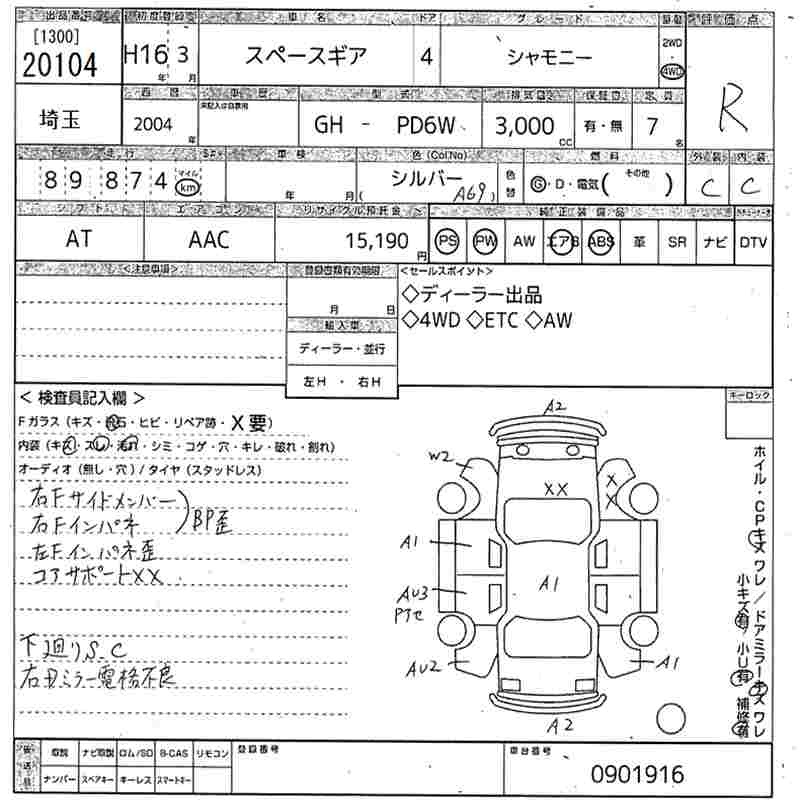 出品番号 初度登録 車名 ドア グレード 駆動 評価点
[1300]
20104 H16年 3月 スペースギア 4 シャモニー 2WD 4WD R
埼玉 西暦 2004年 車歴 型式 GH - PD6W 排気量 3,000 CC 保証書 有・無 定員 7名
未記入は自家用
走行 89,874 マイル km 車検 年 月 色(Col,No) シルバー (A69) 色替 燃料 G・D・電気( その他 ) 外装 C 内装 C
シフト AT エアコン AAC リサイクル預託金 15,190円
純正装備品
PS PW AW エアB ABS 革 SR ナビ DTV
<注意事項> 登録書類有効期限 <セールスポイント>
月 日 ◇ディーラー出品
輸入車 ◇4WD ◇ETC ◇AW
ディーラー・並行
左H ・ 右H
< 検査員記入欄 > キーロック
Fガラス (キズ・飛石・ヒビ・リペア跡・X要)
内装 (キズ・スレ・汚れ・シミ・コゲ・穴・キレ・破れ・割れ)
オーディオ (無し・穴) / タイヤ (スタッドレス)
右Fサイドメンバー
右Fインパネ )BP歪
左Fインパネ歪
コアサポートXX
下廻りS.C
右Dミラー電格不良
A2
W2
XX
X
X
A1
AU3
Pアセ
A1
AU2
A1
A2
ホイル・CPキズ ワレ / ドアミラーキズ ワレ
小キズ有, 小U有 補修有
後送品 取説 ナビ取説 ロム/SD B-CAS リモコン 登録番号 車台番号
ナンバー スペアキー キーレス スマートキー 0901916